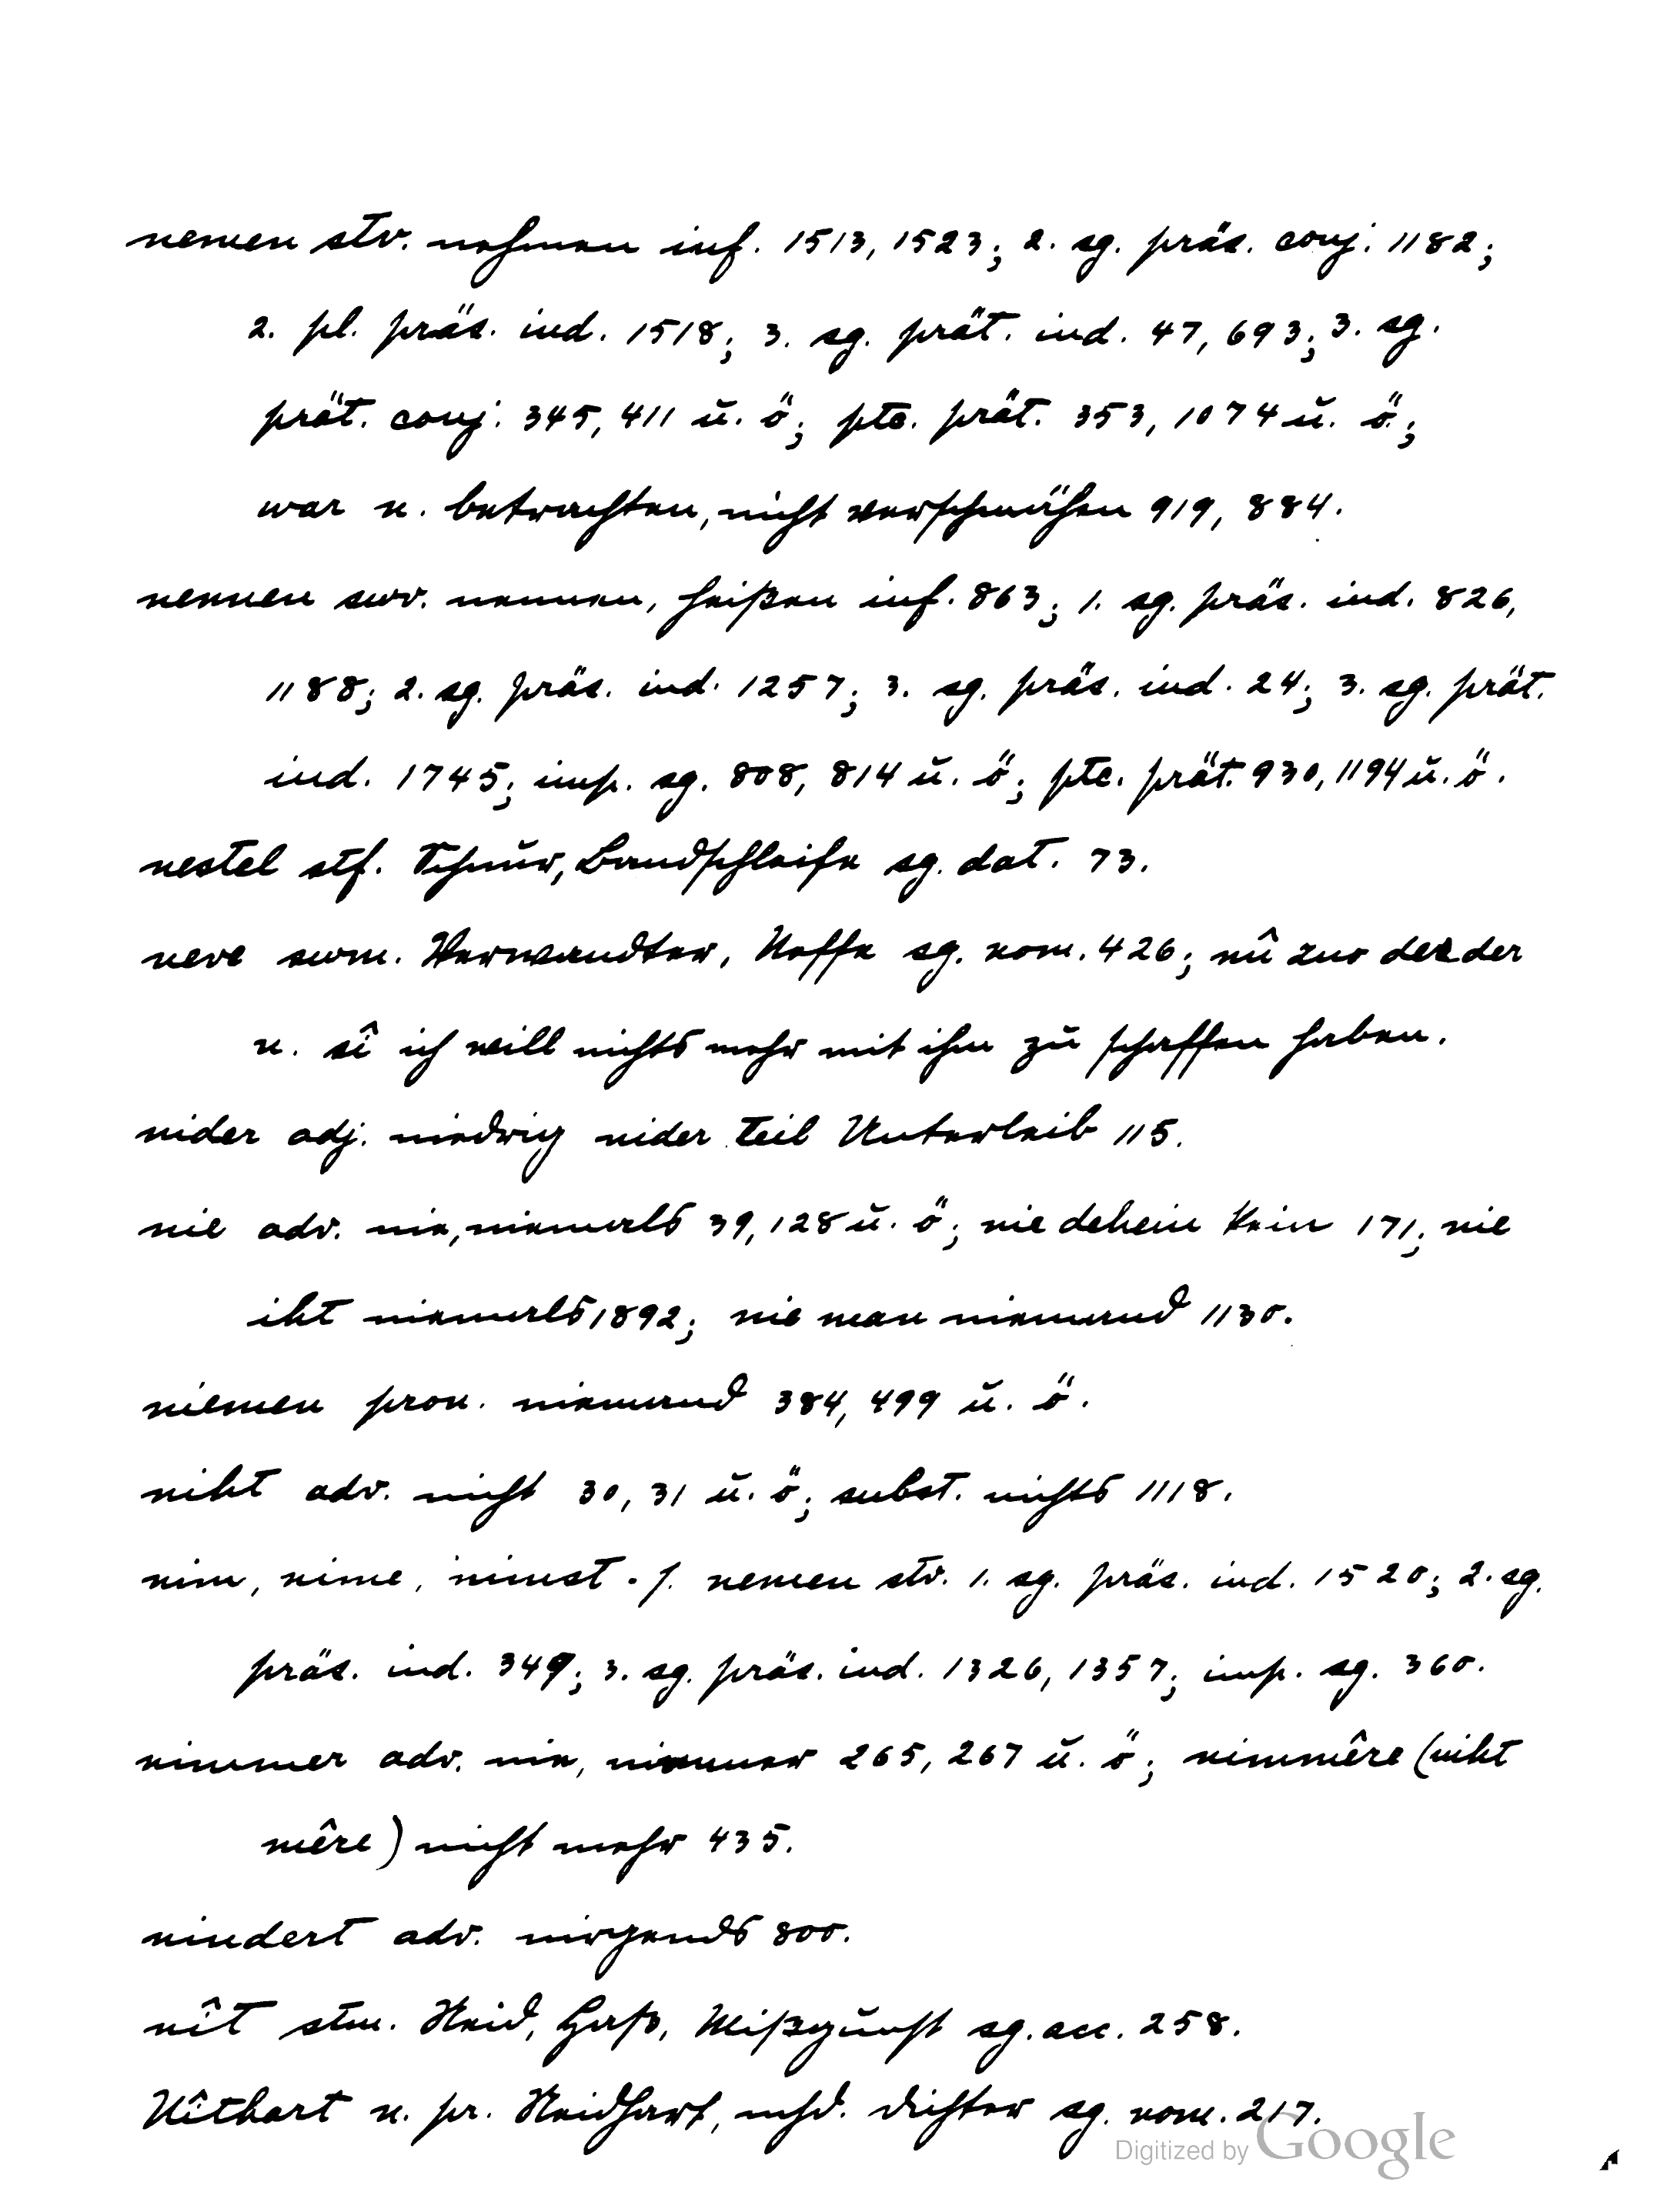 nemen stv. nehmen inf. 1513, 1523; 2. sg. präs. conj. 1182;
2. pl. präs. ind. 1518; 3. sg. prät. ind. 47, 693; 3. sg.
prät. conj. 345, 411 u. ö; ptc. prät. 353, 1074 u. ö.;
war n. betrachten, nicht verschmähen 919, 884.
nennen swv. nennen, heißen inf. 863; 1. sg. präs. ind. 826,
1188; 2. sg. präs. ind. 1257; 3. sg. präs. ind. 24; 3. sg. prät.
ind. 1745; imp. sg. 808, 814 u. ö; ptc. prät. 930, 1194 u. ö.
nestel stf. Schnur, Bandschleife sg. dat. 73.
neve swm. Verwandter, Neffe sg. nom. 426; nû zuo dez der
n. sî ich will nichts mehr mit ihm zu schaffen haben.
nider adj. niedrig nider teil Unterleib 115.
nie adv. nie, niemals 39, 128 u. ö; nie dehein kein 171; nie
iht niemals 1892; nie man niemand 1130.
niemen pron. niemand 384, 499 u. ö.
niht adv. nicht 30, 31 u. ö; subst. nichts 1118.
nim, nime, nimst . s. nemen stv. 1. sg. präs. ind. 1520; 2. sg.
präs. ind. 349; 3. sg. präs. ind. 1326, 1357; imp. sg. 360.
nimmer adv. nie, nimmer 265, 267 u. ö; nimmêre (niht
mêre) nicht mehr 435.
nindert adv. nirgends 800.
nît stm. Neid, Haß, Mißgunst sg. acc. 258.
Nîthart n. pr. Neidhart, mhd. Dichter sg. nom. 217.
Digitized by Google